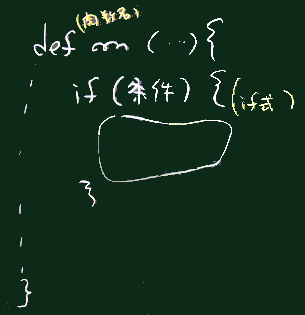 (関数名)
def m (…) {
if (条件) { (if式)
}
}